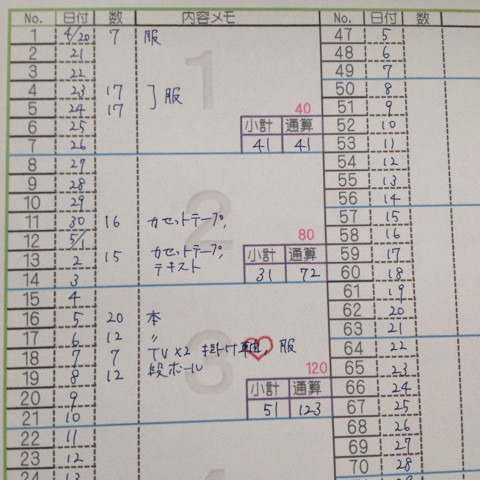 No. 日付 数 内容メモ
1 4/20 7 服
2 21
3 22
4 23 17
5 24 17 ] 服
6 25
7 26
40
小計 通算
41 41
8 27
9 28
10 29
11 30 16 カセットテープ,
12 5/1
13 2 15 カセットテープ,
テキスト
14 3
80
小計 通算
31 72
15 4
16 5 20 本
17 6 12 〃
18 7 7 TV×2 掛け軸, 服
19 8 12 段ボール
20 9
21 10
120
小計 通算
51 123
22 11
23 12
24 13
1
2
3
No. 日付 数
47 5
48 6
49 7
50 8
51 9
52 10
53 11
54 12
55 13
56 14
57 15
58 16
59 17
60 18
61 19
62 20
63 21
64 22
65 23
66 24
67 25
68 26
69 27
70 28